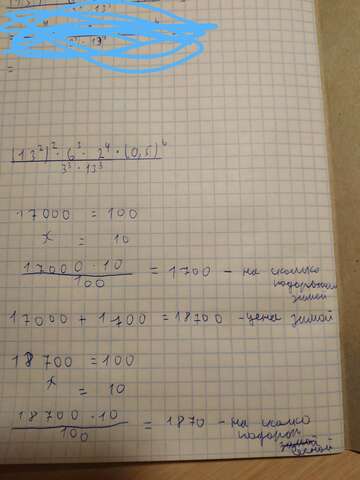 (13²)² · 6³ · 2⁴ · (0,5)⁶
3³ · 13³
17000 = 100
x = 10
17000 · 10
100
= 1700 - на сколько
подорожал
зимой
17000 + 1700 = 18700 - цена зимой
18700 = 100
x = 10
18700 · 10
100
= 1870 - на сколко
подорож
весной